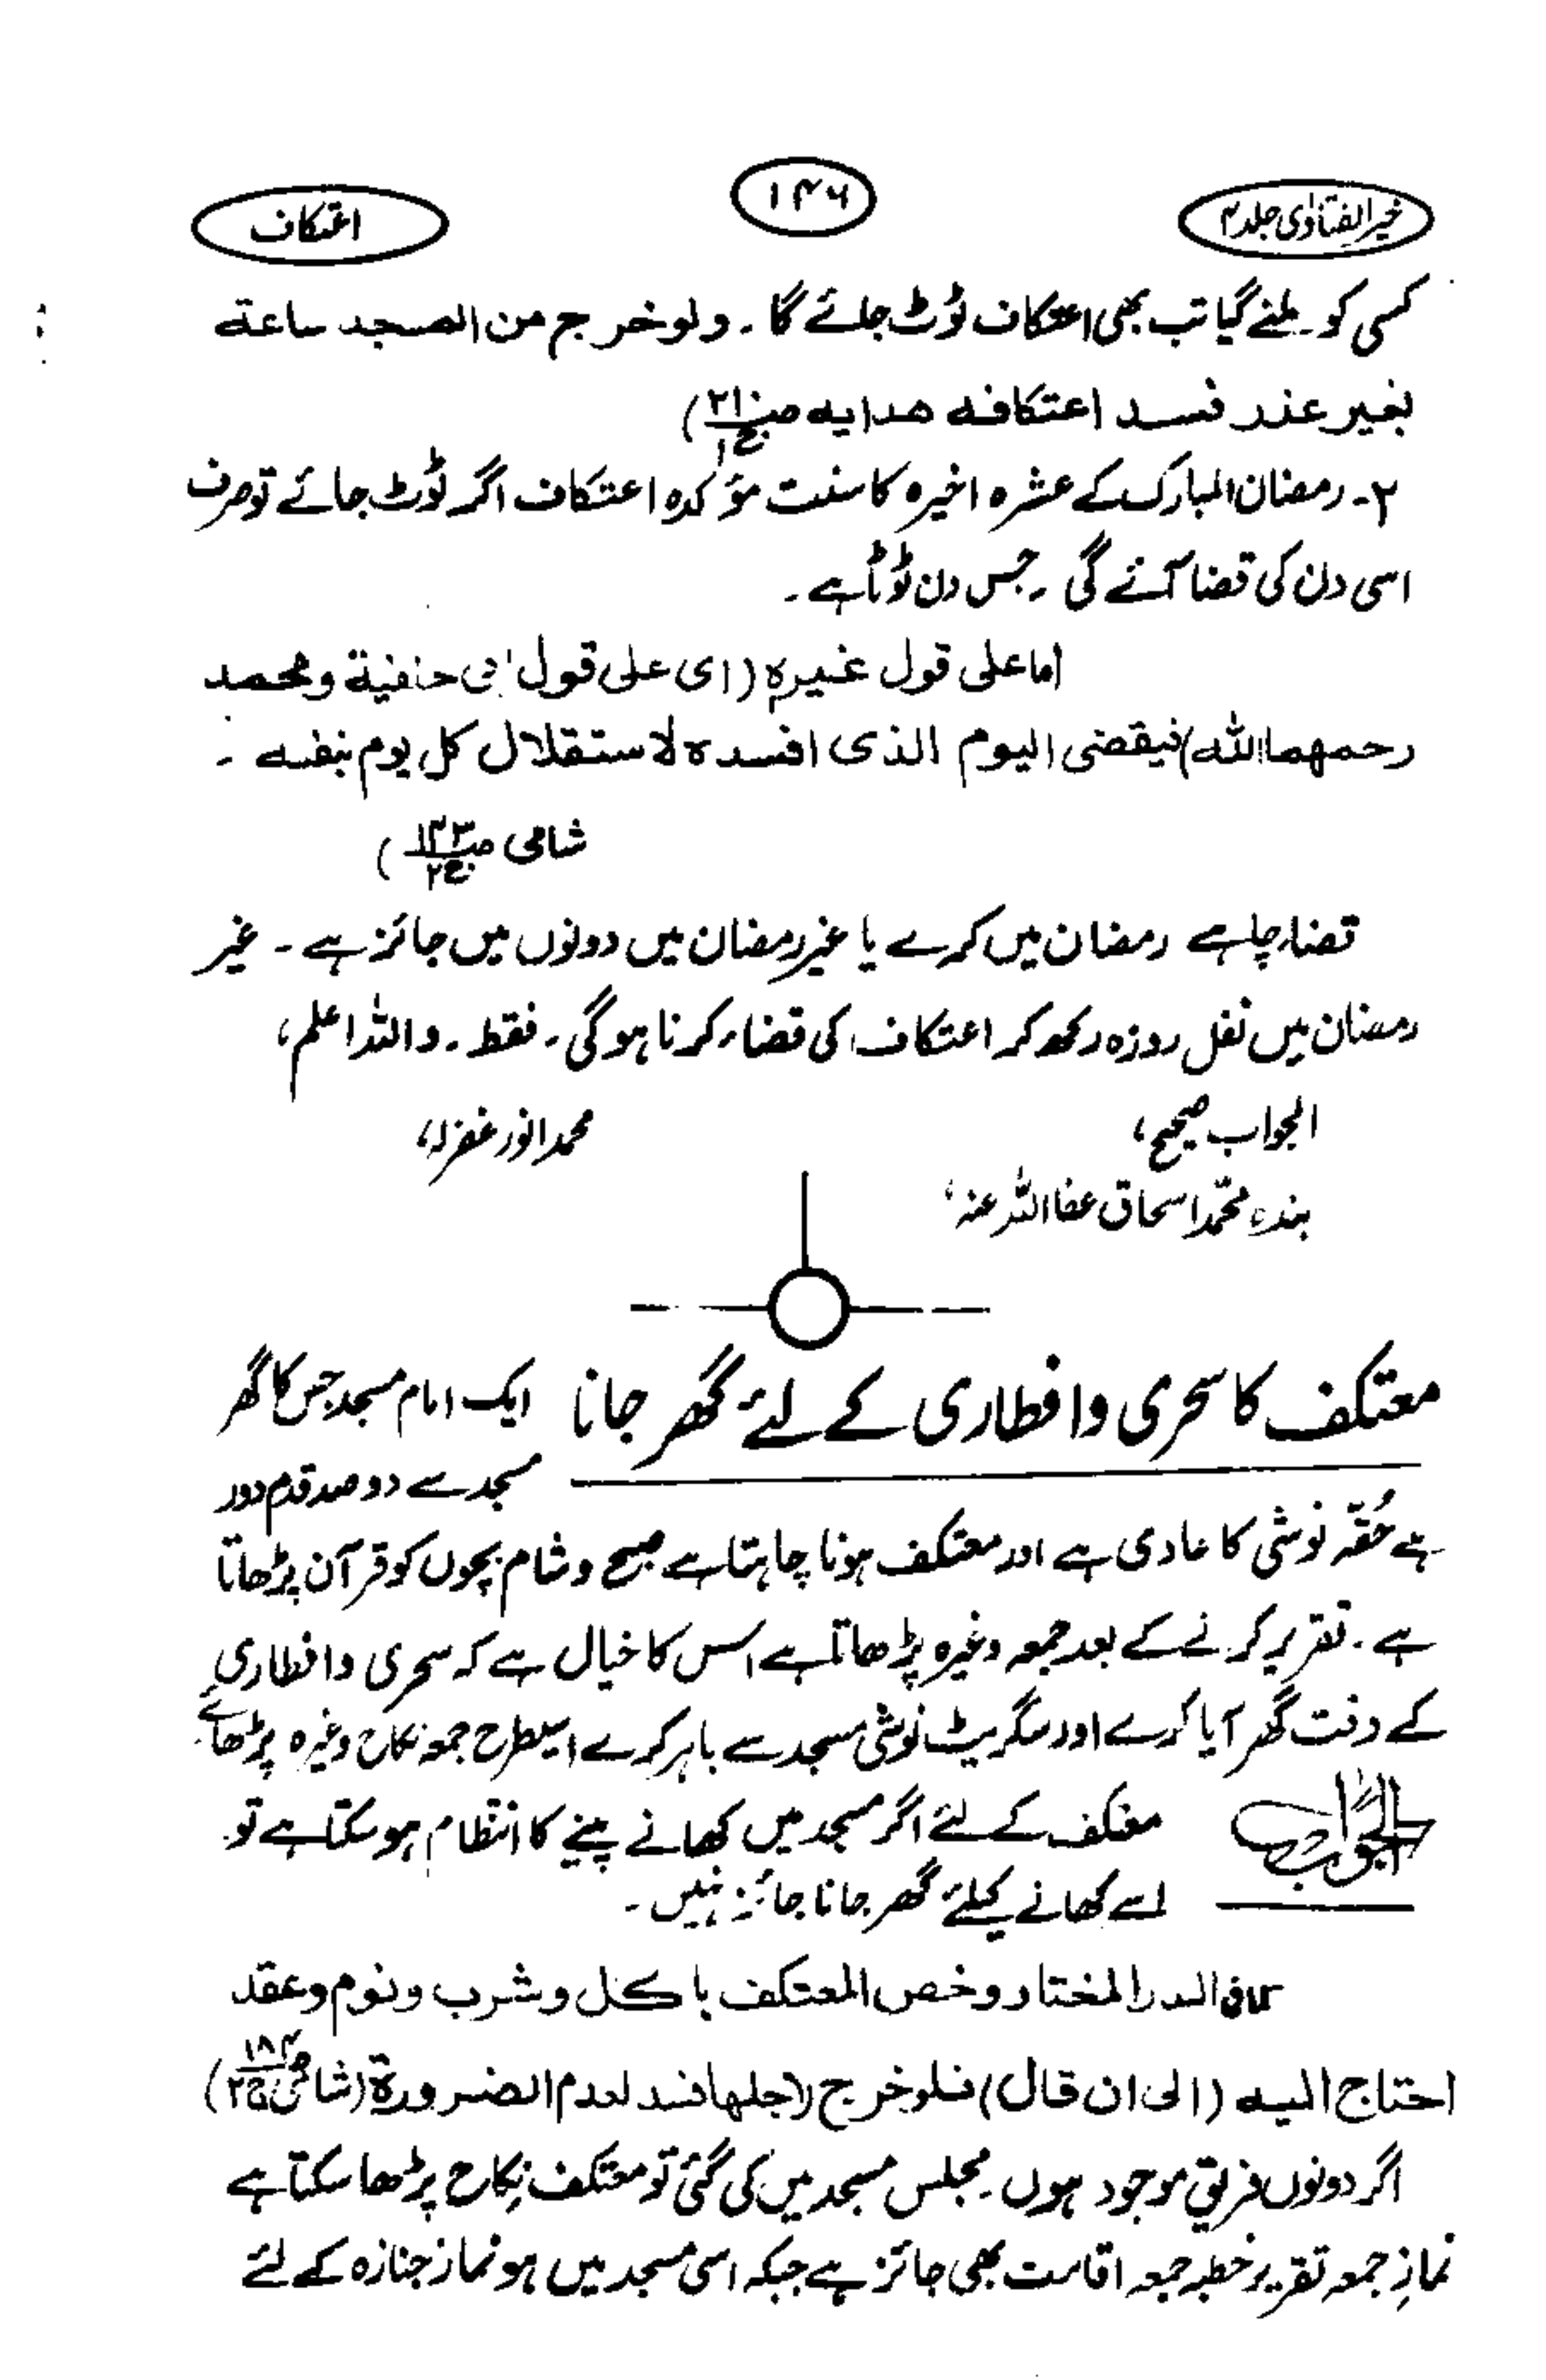 خیر الفتاویٰ جلد ۴
۱۴۶
اعتکاف
کسی کو ملنے گیا تب بھی اعتکاف ٹوٹ جائے گا ۔ ولو خرج من المسجد ساعة
بغیر عذر فسد اعتکافه هدایه
۲۔ رمضان المبارک کے عشرہ اخیرہ کا سنت مؤکدہ اعتکاف اگر ٹوٹ جائے تو صرف
اسی دن کی قضا آئے گی ۔ جس دن ٹوٹا ہے ۔
اما علی قول غیره (ای علی قول ابی حنفیة و محمد
رحمهما الله) فیقضی الیوم الذی افسده لاستقلال کل یوم بنفسه ۔
شامی
قضاء چاہے رمضان میں کرے یا غیر رمضان میں دونوں میں جائز ہے ۔ غیر
رمضان میں نفل روزہ رکھ کر اعتکاف کی قضاء کرنا ہوگی ۔ فقط ۔ واللہ اعلم،
الجواب صحیح، محمد انور غفرلہ،
بندہ محمد اسحاق عفا اللہ عنہ،
معتکف کا سحری وافطاری کے لئے گھر جانا ایک امام مسجد جس کا گھر
مسجد سے دو صد قدم دور
ہے حُقہ نوشی کا عادی ہے اور معتکف ہونا چاہتا ہے صبح و شام بچوں کو قرآن پڑھاتا
ہے ۔ تقریر کرنے کے بعد جمعہ وغیرہ پڑھاتا ہے اس کا خیال ہے کہ سحری وافطاری
کے وقت گھر آیا کرے اور سگریٹ نوشی مسجد سے باہر کرے اسیطرح جمعہ نکاح وغیرہ پڑھائے
الجواب معتکف کے لئے اگر مسجد میں کھانے پینے کا انتظام ہوسکتا ہے تو
اسے کھانے کیلئے گھر جانا جائز نہیں ۔
کمافی الدر المختار وخص المعتکف باکل وشرب ونوم وعقد
احتاج الیه (الی ان قال) فلو خرج لاجلها فسد لعدم الضرورة (شامی
اگر دونوں فریق موجود ہوں ۔ مجلس مسجد میں کی گئی تو معتکف نِکاح پڑھا سکتا ہے
نمازِ جمعہ تقریر خطبہ جمعہ اقامت بھی جائز ہے جبکہ اسی مسجد میں ہو نمازِ جنازہ کے لئے